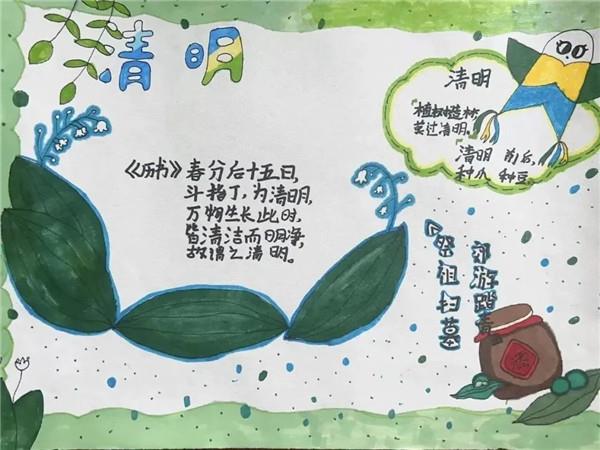 清明
《历书》春分后十五日,
斗指丁,为清明,
万物生长此时,
皆清洁而明净,
故谓之清明。
清明
植树造林,
莫过清明。
清明 前后,
种瓜 种豆。
祭祖扫墓
郊游踏青